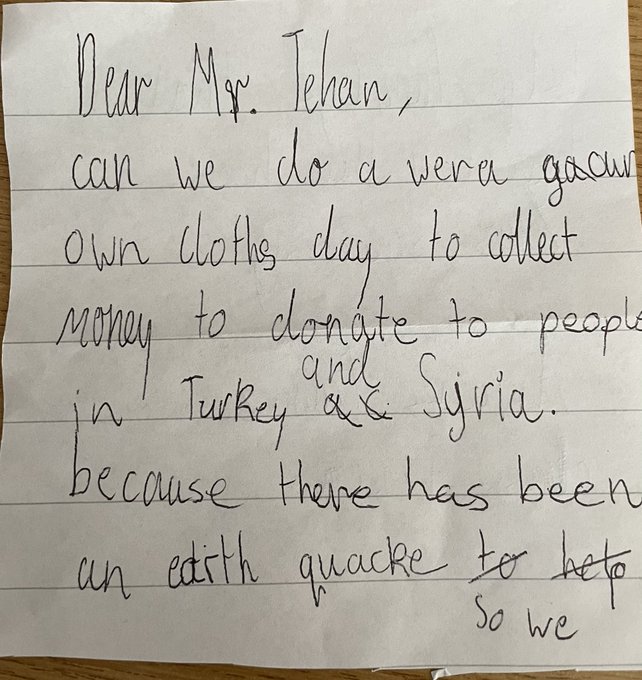 Dear Mr. Tehan,
can we do a wera
own cloths day to collect
money to donate to people
and
in Turkey Syria.
because there has been
an edith quacke to help
so we